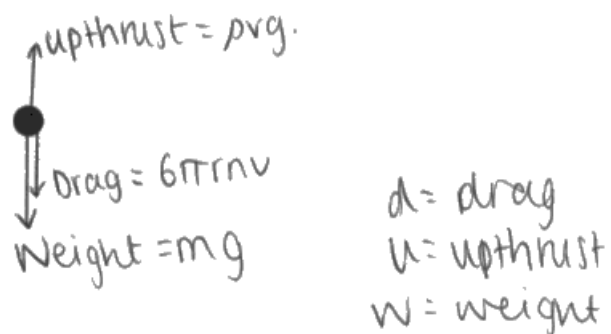 upthrust = ρvg.
Drag = 6πrηv
Weight = mg
d = drag
u = upthrust
w = weight